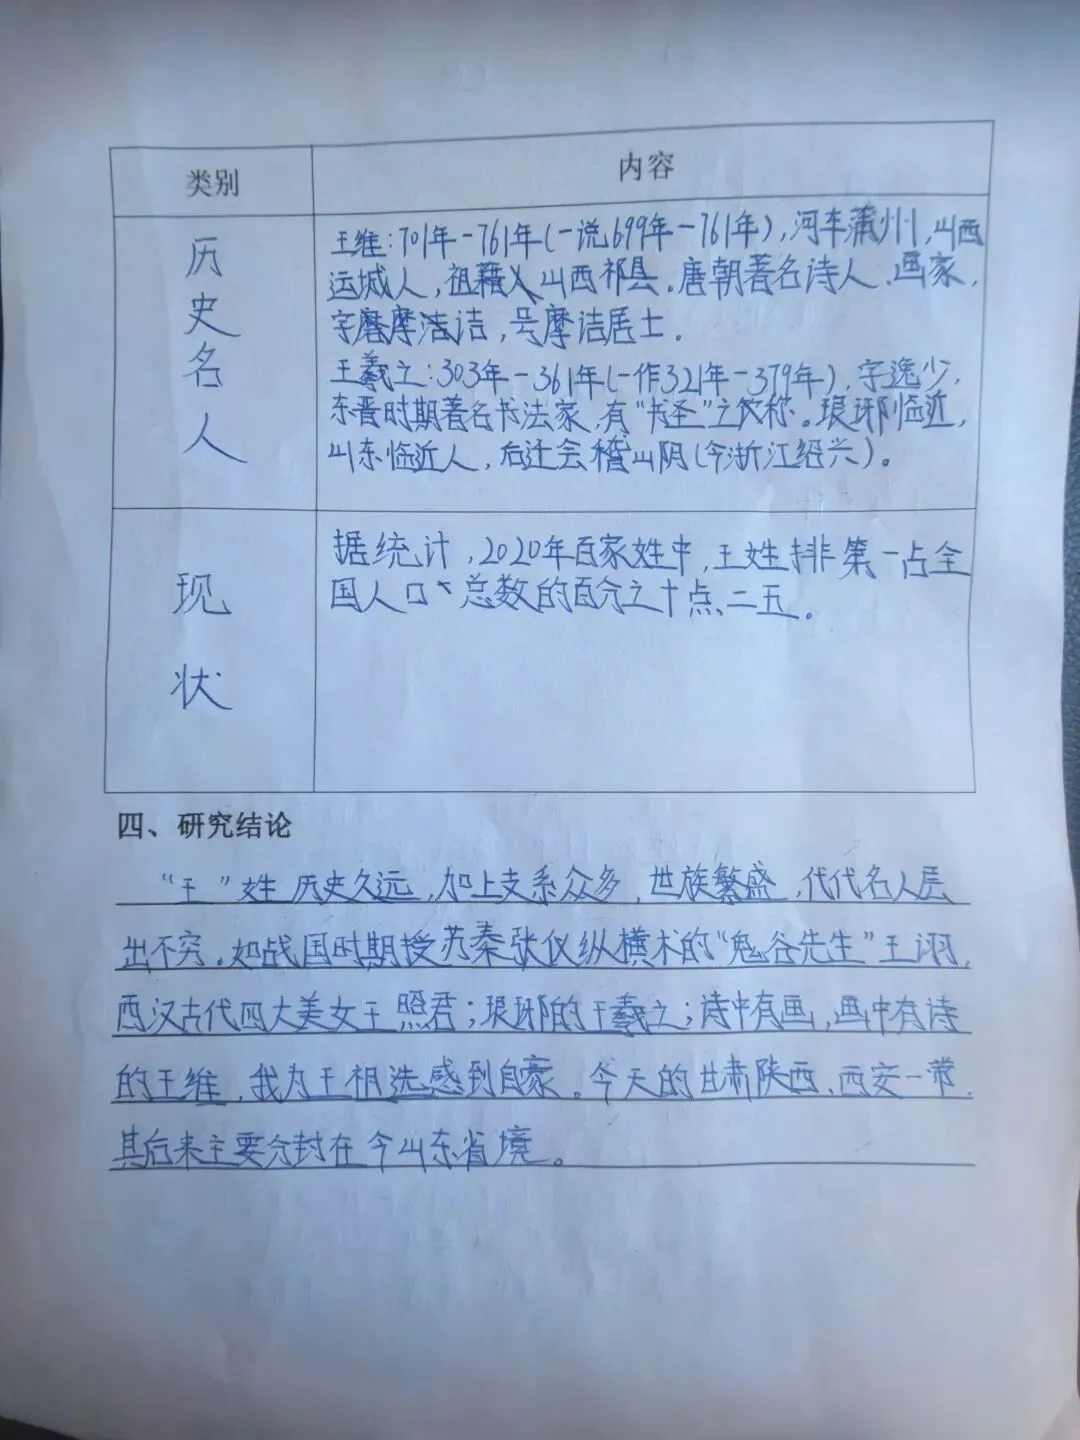 类别
内容
历史名人
王维:701年-761年(一说699年-761年),河东蒲州,山西
运城人,祖籍山西祁县。唐朝著名诗人、画家,
字摩诘,号摩诘居士.
王羲之:303年-361年(一作321年-379年),字逸少,
东晋时期著名书法家,有“书圣”之称。琅琊临近,
山东临近人,后迁会稽山阴(今浙江绍兴)。
现状
据统计,2020年百家姓中,王姓排第一占全
国人口、总数的百分之十点二五。
四、研究结论
“王”姓历史久远,加上支系众多,世族繁盛,代代名人层
出不穷。如战国时期授苏秦张仪纵横术的“鬼谷先生”王诩,
西汉古代四大美女王照君;琅琊的王羲之;诗中有画,画中有诗
的王维,我为王祖选感到自豪。今天的甘肃陕西、西安一带,
其后来主要分封在今山东省境。